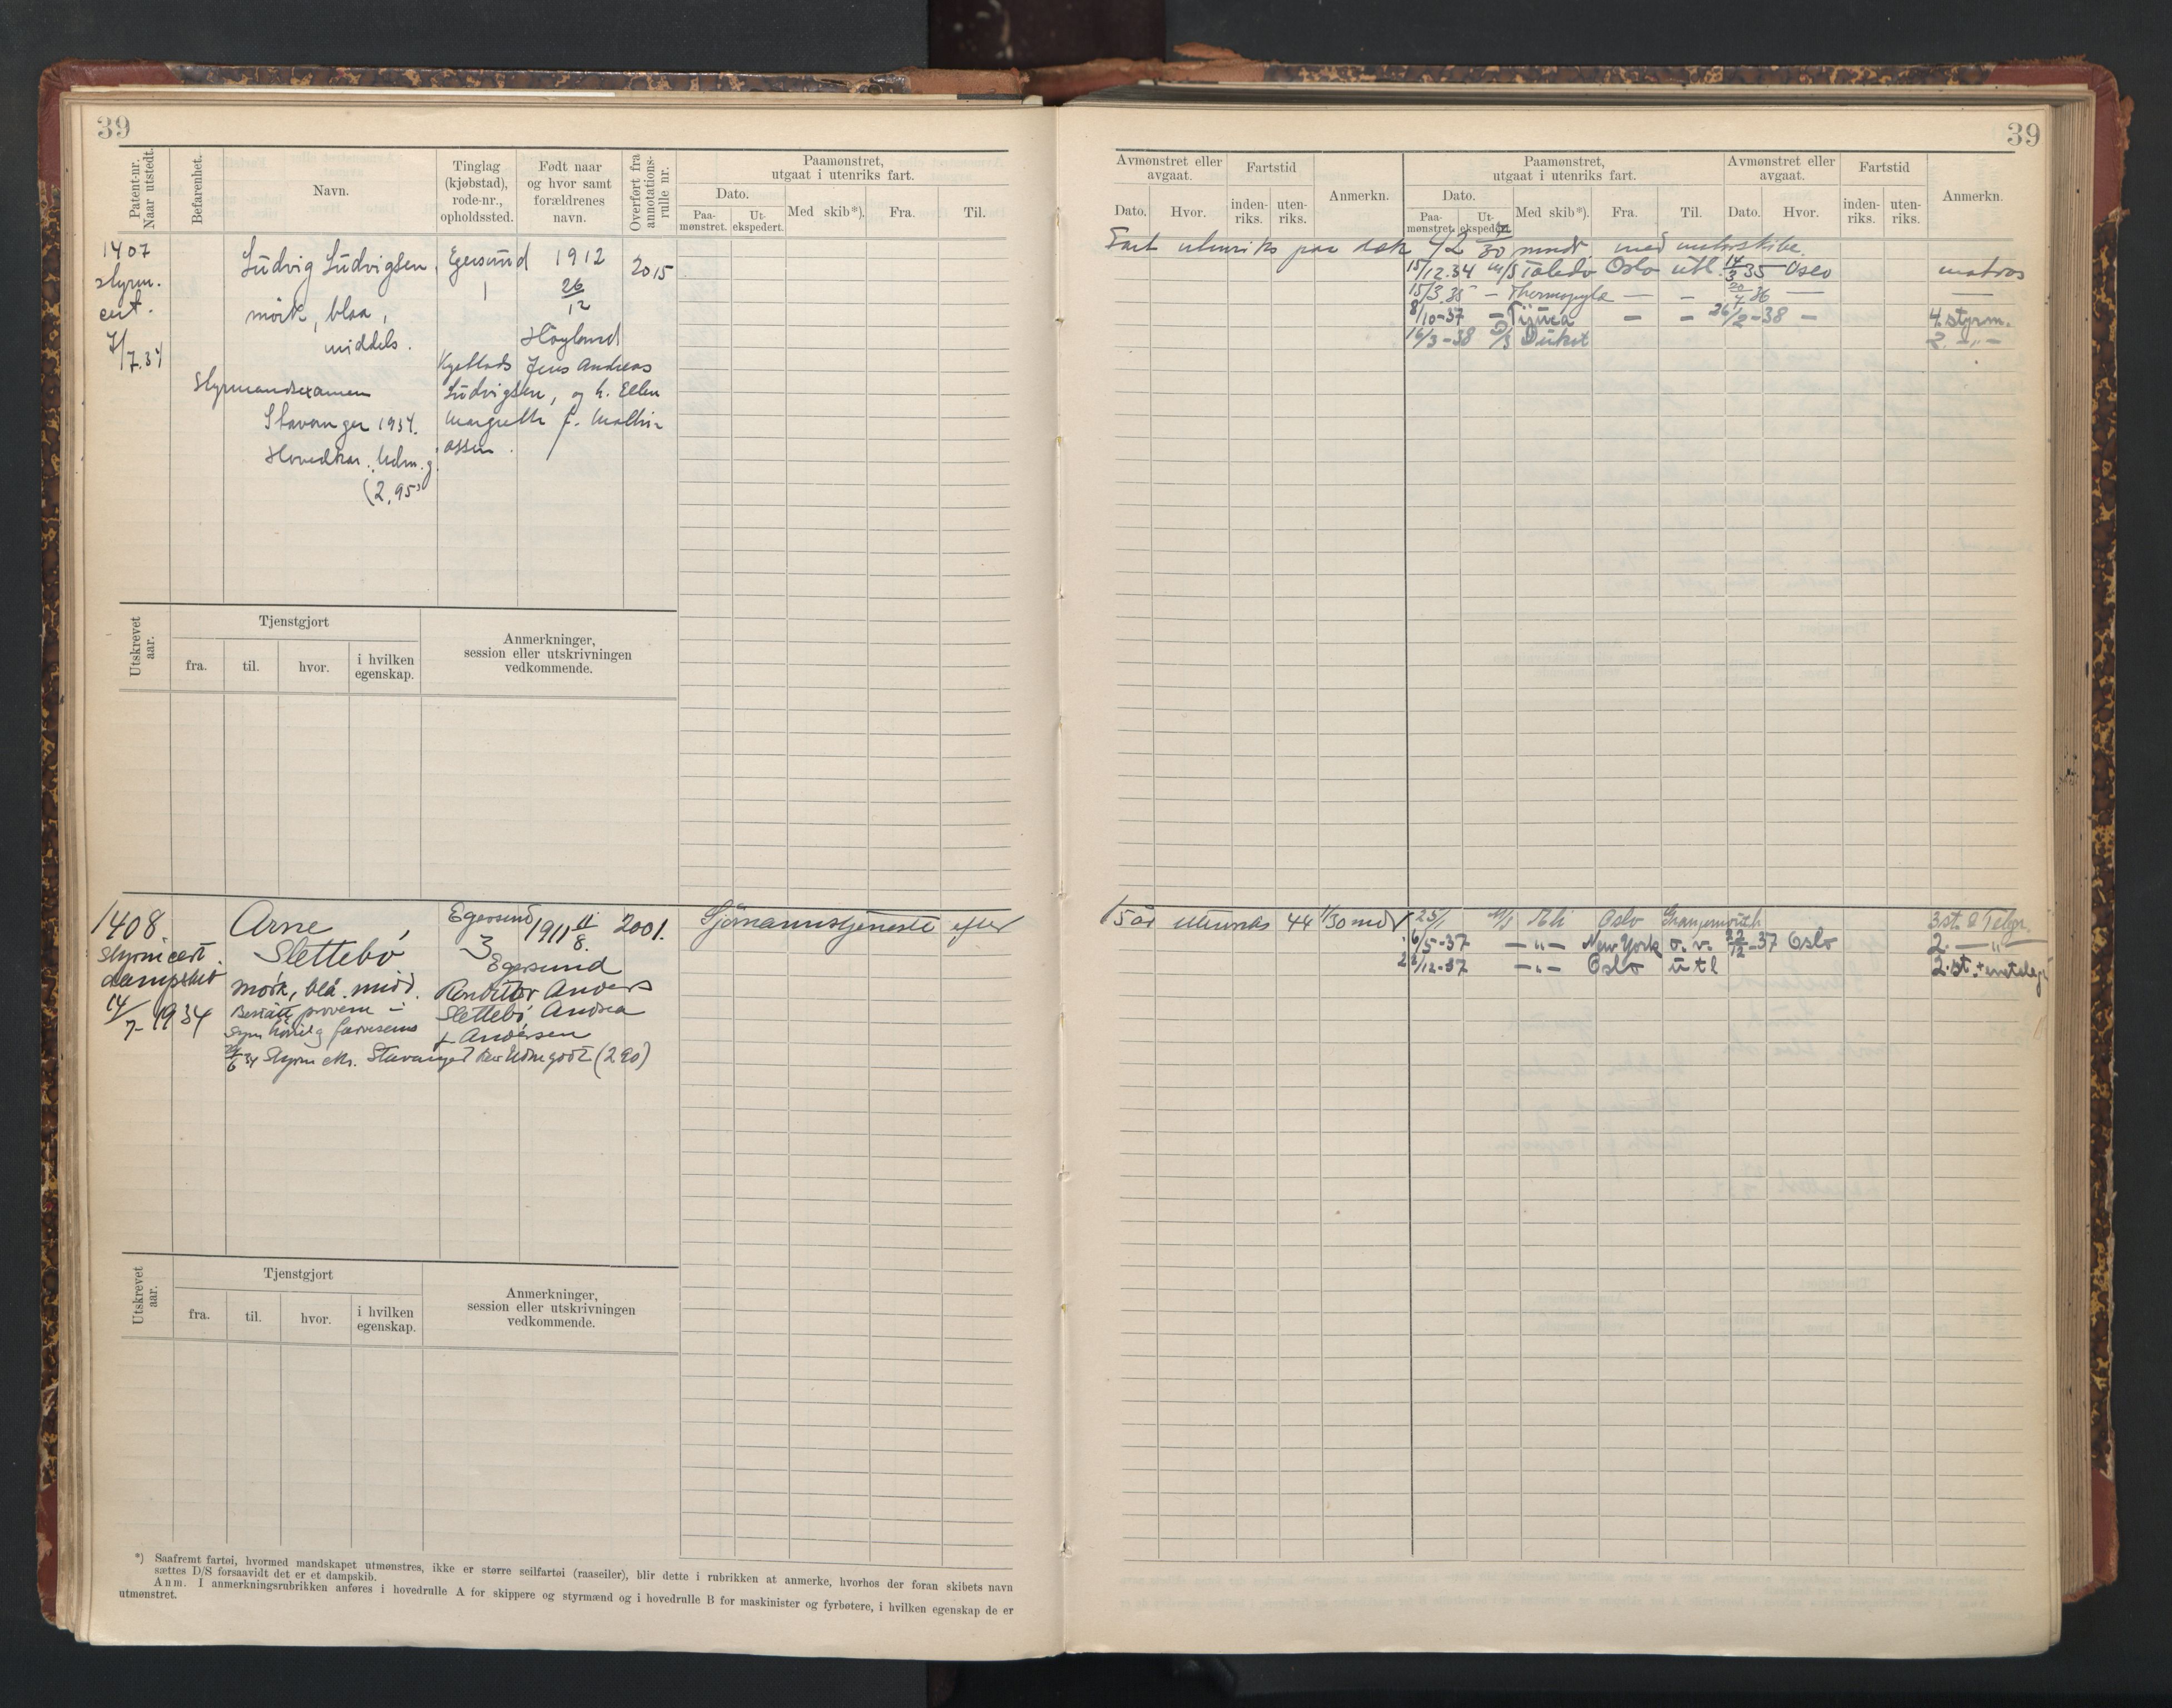 39
Patent-nr. Naar utstedt.
Befarenhet.
Navn.
Tinglag (kjøbstad), rode-nr., opholdssted.
Født naar og hvor samt forældrenes navn.
Overført fra annotations-rulle nr.
Paamønstret, utgaat i utenriks fart.
Dato.
Paa-mønstret.
Ut-ekspedert.
Med skib*).
Fra.
Til.
1407
styrm.
cert.
7/7.34
Ludvig Ludvigsen,
mörk, blaa,
middels.
Styrmandsexamen
Stavanger 1934.
Hovedkar. Udm. g.
(2,95)
Egersund
1
1912
26/12
Höyland
2015
Jens Andreas
Ludvigsen, og h. Ellen
Margrethe f. Mathi-
assen.
Utskrevet aar.
Tjenstgjort
fra.
til.
hvor.
i hvilken egenskap.
Anmerkninger, session eller utskrivningen vedkommende.
1408
styrm cert.
dampskib
14/7-1934
Arne
Slettebö
Mörk, blå. midd.
Bestått prøvene i
syn hørsel og farvesans
Styrm eks. Stavanger Udm godt (2 90)
Egersund
3
1911 11/8.
Egersund
Anders
Slettebö Andrea
f Andersen
2001.
Sjömannstjeneste efter
Utskrevet aar.
Tjenstgjort
fra.
til.
hvor.
i hvilken egenskap.
Anmerkninger, session eller utskrivningen vedkommende.
*) Saafremt fartøi, hvormed mandskapet utmønstres, ikke er større seilfartøi (raaseiler), blir dette i rubrikken at anmerke, hvorhos der foran skibets navn
sættes D/S forsaavidt det er et dampskib.
Anm. I anmerkningsrubrikken anføres i hovedrulle A for skippere og styrmænd og i hovedrulle B for maskinister og fyrbøtere, i hvilken egenskap de er
utmønstret.
39
Avmønstret eller avgaat.
Dato.
Hvor.
Fartstid
inden-riks.
uten-riks.
Anmerkn.
Paamønstret, utgaat i utenriks fart.
Dato.
Paa-mønstret.
Ut-ekspedert.
Med skib*).
Fra.
Til.
Avmønstret eller avgaat.
Dato.
Hvor.
Fartstid
inden-riks.
uten-riks.
Anmerkn.
Fart utenriks paa dæk 42 /30 mndr. med motorskibe.
15/12.34 M/S Toledo Oslo utl. 14/3 35 Oslo matros
15/3.35 — Thermopylæ — — 20/7 36 — —
8/10-37 — Tijuca — — 26/2-38 — 4. styrm.
16/3-38 D/S Dukat 2. -"-
15 år utenriks 44 11/30 mdr
25/1 M/S Eli Oslo Grangemouth 3 st. & Telgr.
6/5-37 -"- New York o. v. 22/12-37 Oslo 2. -"-
23/12-37 -"- Oslo utl 2. st.